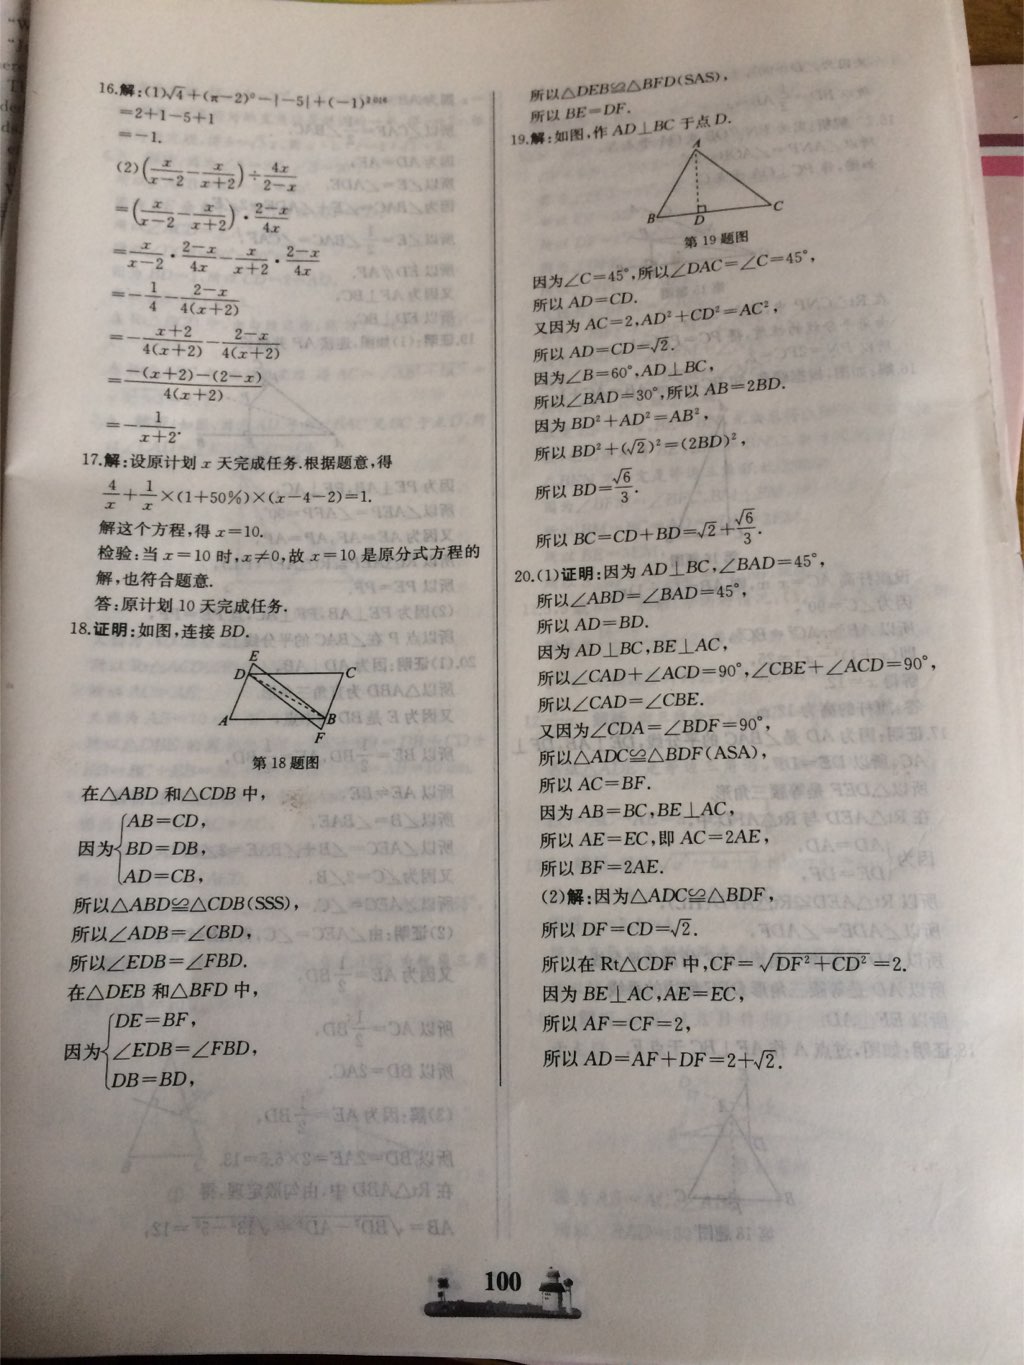 16.解:(1)√4+(π-2)⁰-|-5|+(-1)²⁰¹⁶
=2+1-5+1
=-1.
(2)(x/(x-2)-x/(x+2))÷4x/(2-x)
=(x/(x-2)-x/(x+2))·(2-x)/4x
=x/(x-2)·(2-x)/4x-x/(x+2)·(2-x)/4x
=-1/4-(2-x)/4(x+2)
=-(x+2)/4(x+2)-(2-x)/4(x+2)
=(-(x+2)-(2-x))/4(x+2)
=-1/(x+2).
17.解:设原计划 x 天完成任务.根据题意,得
4/x+1/x×(1+50%)×(x-4-2)=1.
解这个方程,得 x=10.
检验:当 x=10 时,x≠0,故 x=10 是原分式方程的
解,也符合题意.
答:原计划 10 天完成任务.
18.证明:如图,连接 BD.
E
D C
A B
F
第 18 题图
在△ABD 和△CDB 中,
AB=CD,
因为{BD=DB,
AD=CB,
所以△ABD≌△CDB(SSS),
所以∠ADB=∠CBD,
所以∠EDB=∠FBD.
在△DEB 和△BFD 中,
DE=BF,
因为{∠EDB=∠FBD,
DB=BD,
所以△DEB≌△BFD(SAS),
所以 BE=DF.
19.解:如图,作 AD⊥BC 于点 D.
A
B D C
第 19 题图
因为∠C=45°,所以∠DAC=∠C=45°,
所以 AD=CD.
又因为 AC=2,AD²+CD²=AC²,
所以 AD=CD=√2.
因为∠B=60°,AD⊥BC,
所以∠BAD=30°,所以 AB=2BD.
因为 BD²+AD²=AB²,
所以 BD²+(√2)²=(2BD)²,
所以 BD=√6/3.
所以 BC=CD+BD=√2+√6/3.
20.(1)证明:因为 AD⊥BC,∠BAD=45°,
所以∠ABD=∠BAD=45°,
所以 AD=BD.
因为 AD⊥BC,BE⊥AC,
所以∠CAD+∠ACD=90°,∠CBE+∠ACD=90°,
所以∠CAD=∠CBE.
又因为∠CDA=∠BDF=90°,
所以△ADC≌△BDF(ASA),
所以 AC=BF.
因为 AB=BC,BE⊥AC,
所以 AE=EC,即 AC=2AE,
所以 BF=2AE.
(2)解:因为△ADC≌△BDF,
所以 DF=CD=√2.
所以在 Rt△CDF 中,CF=√(DF²+CD²)=2.
因为 BE⊥AC,AE=EC,
所以 AF=CF=2,
所以 AD=AF+DF=2+√2.
100